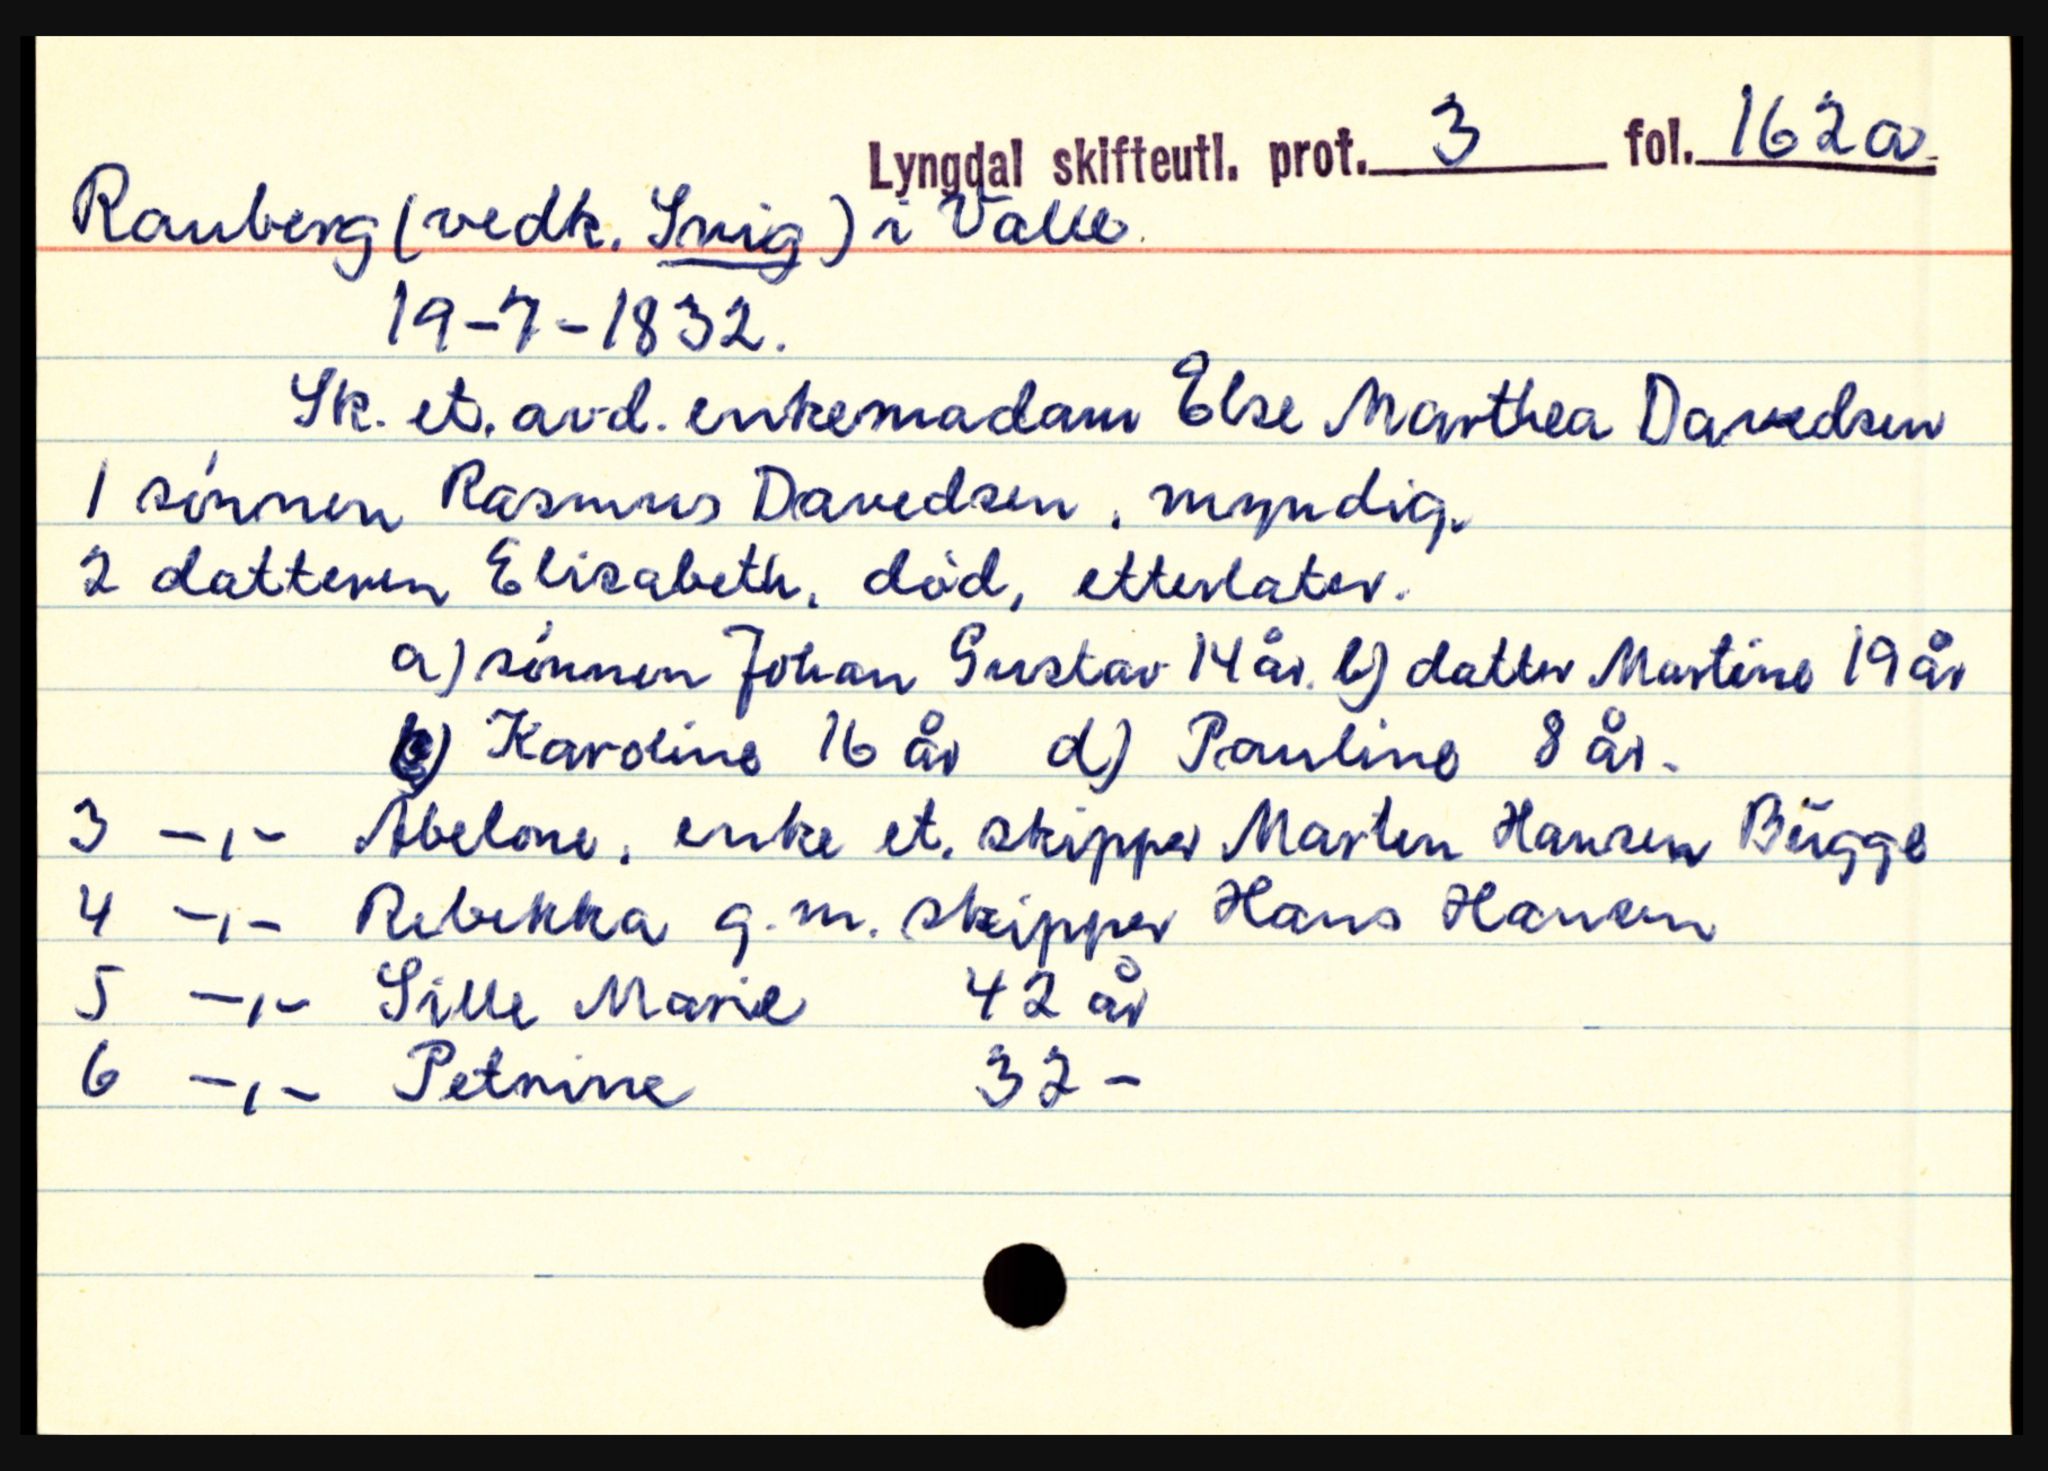 Lyngdal skifteutl. prot. 3 fol. 162a
Rauberg (vedk. Svig) i Valle
19-7-1832.
Sk. et. avd. enkemadam Else Marthea Davedsen
1 sønnen Rasmus Davedsen, myndig.
2 datteren Elisabeth, død, etterlater.
a) sønnen Johan Gustav 14 år. b) datter Martine 19 år
c) Karoline 16 år d) Pauline 8 år.
3 -,,- Abelone, enke et. skipper Marten Hansen Bugge
4 -,,- Rebekka g.m. skipper Hans Hansen
5 -,,- Sille Marie 42 år
6 -,,- Petrine 32 -